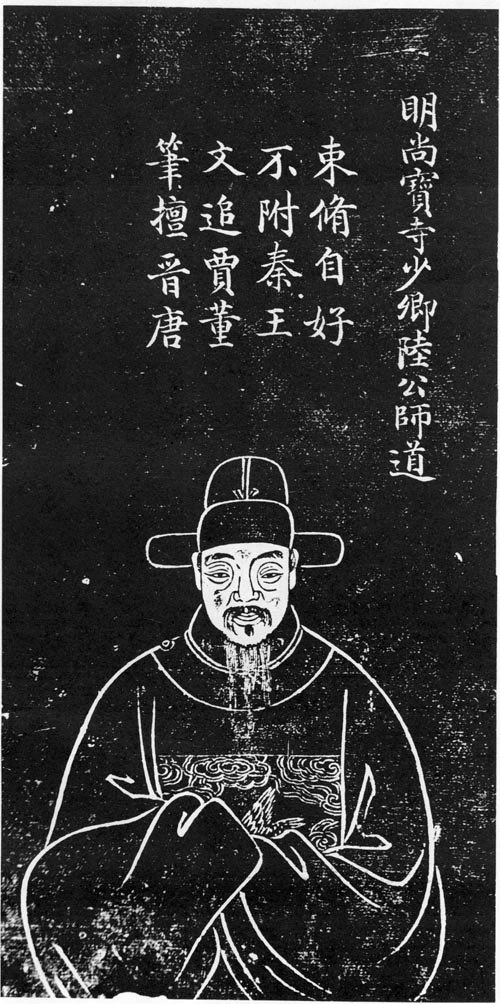 明尚寶寺少卿陸公師道
束脩自好
不附秦王
文追賈董
筆擅晋唐